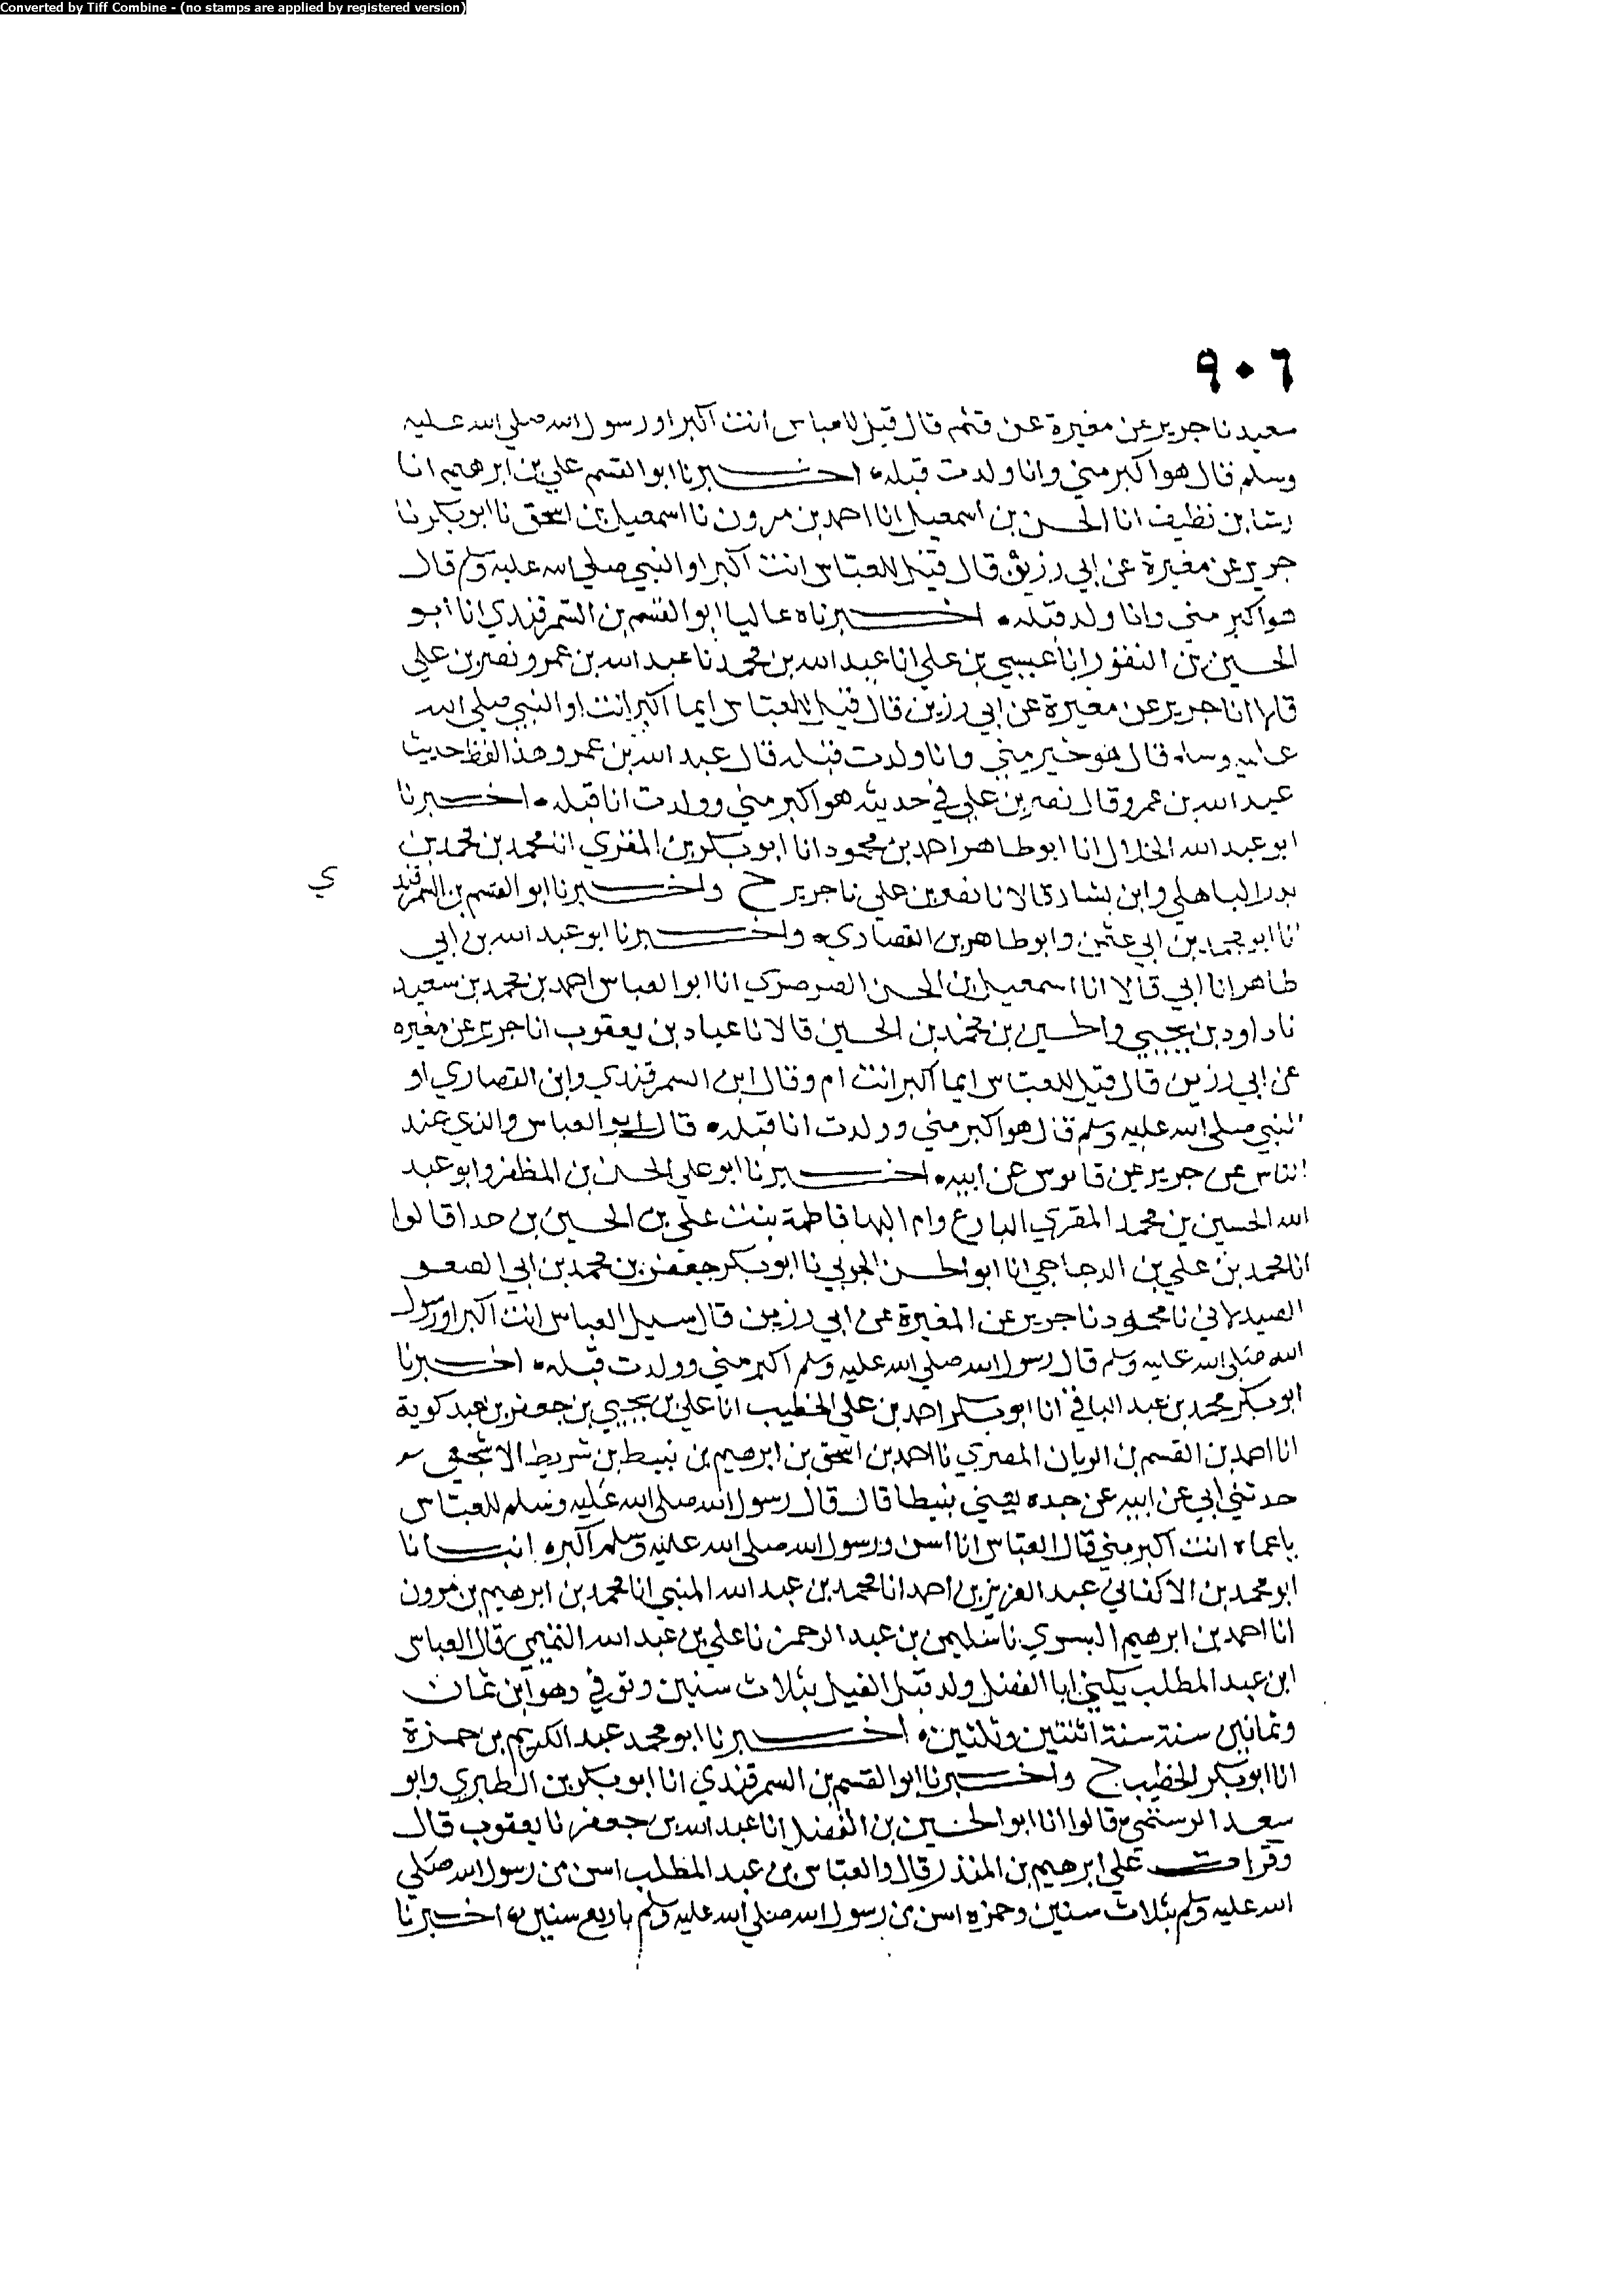 Converted by Tiff Combine - (no stamps are applied by registered version)
٩٠٦
سعيد نا جرير عن مغيرة عن قثم قال قيل للعباس انت اكبر او رسول الله صلي الله عليه
وسلم قال هو اكبر مني وانا ولدت قبله اخبرنا ابو القسم علي بن ابرهيم انا
رشا بن نظيف انا الحسن بن اسمعيل انا احمد بن مرون نا اسمعيل بن اسحق نا ابو بكر نا
جرير عن مغيرة عن ابي رزين قال قيل للعباس انت اكبر او النبي صلي الله عليه وسلم قال
هو اكبر مني وانا ولد قبله اخبرناه عاليا ابو القسم بن السمرقندي انا ابو
الحسين بن النقور انا عيسي بن علي انا عبد الله بن محمد نا عبد الله بن عمر ونصر بن علي
قالا انا جرير عن مغيرة عن ابي رزين قال قيل للعباس ايما اكبر انت او النبي صلي الله
عليه وسلم قال هو خير مني وانا ولدت قبله قال عبد الله بن عمر وهذا لفظ حديث
عبد الله بن عمر وقال نصر بن علي في حديثه هو اكبر مني وولدت انا قبله اخبرنا
ابو عبد الله الخلال انا ابو طاهر احمد بن محمود انا ابو بكر بن المقري انا محمد بن محمد بن
بدر الباهلي وابن بشار قالا نا نصر بن علي نا جرير ح واخبرنا ابو القسم بن السمرقند
ي
انا ابو محمد بن ابي عثمن وابو طاهر بن القصاري واخبرنا ابو عبد الله بن ابي
طاهر انا ابي قالا انا اسمعيل بن الحسن الصرصري انا ابو العباس احمد بن محمد بن سعيد
نا داود بن يحيي والحسين بن محمد بن الحسين قالا نا عباد بن يعقوب انا جرير عن مغيره
عن ابي رزين قال قيل للعباس ايما اكبر انت ام وقال ابن السمرقندي وابن القصاري او
النبي صلي الله عليه وسلم قال هو اكبر مني وولدت انا قبله قال ابو العباس والذي عند
الناس عن جرير عن قابوس عن ابيه اخبرنا ابو علي الحسن بن المظفر وابو عبد
الله الحسين بن محمد المقري البارع وام البها فاطمة بنت علي بن الحسين بن جدا قالوا
انا محمد بن علي بن الدجاجي انا ابو الحسن الحربي نا ابو بكر جعفر بن محمد بن ابي الصعو
الصيدلاني نا محمود نا جرير عن المغيرة عن ابي رزين قال سيل العباس انت اكبر او رسول
الله صلي الله عليه وسلم قال رسول الله صلي الله عليه وسلم اكبر مني وولدت قبله اخبرنا
ابو بكر محمد بن عبد الباقي انا ابو بكر احمد بن علي الخطيب انا علي بن يحيي بن جعفر بن عبد كوية
انا احمد بن القسم بن الريان المصري نا احمد بن اسحق بن ابرهيم بن نبيط بن شريط الاشجعي
حدثني ابي عن ابيه عن جده يعني نبيطا قال قال رسول الله صلي الله عليه وسلم للعباس
يا عماه انت اكبر مني قال العباس انا اسن ورسول الله صلي الله عليه وسلم اكبر انبانا
ابو محمد بن الاكفاني عبد العزيز بن احمد انا محمد بن عبد الله المنبي انا محمد بن ابرهيم بن مرون
انا احمد بن ابرهيم البسري نا سليمن بن عبد الرحمن نا علي بن عبد الله التميمي قال العباس
ابن عبد المطلب يكني ابا الفضل ولد قبل الفيل بثلاث سنين وتوفي وهو ابن ثمان
وثمانين سنة سنة اثنتين وثلثين اخبرنا ابو محمد عبد الكريم بن حمزة
انا ابو بكر الخطيب ح واخبرنا ابو القسم بن السمرقندي انا ابو بكر بن الطبري وابو
سعد الرستمي قالوا انا ابو الحسين بن الفضل انا عبد الله بن جعفر نا يعقوب قال
وقرات علي ابرهيم بن المنذر قال والعباس بن عبد المطلب اسن من رسول الله صلي
الله عليه وسلم بثلاث سنين وحمزه اسن من رسول الله صلي الله عليه وسلم باربع سنين اخبرنا